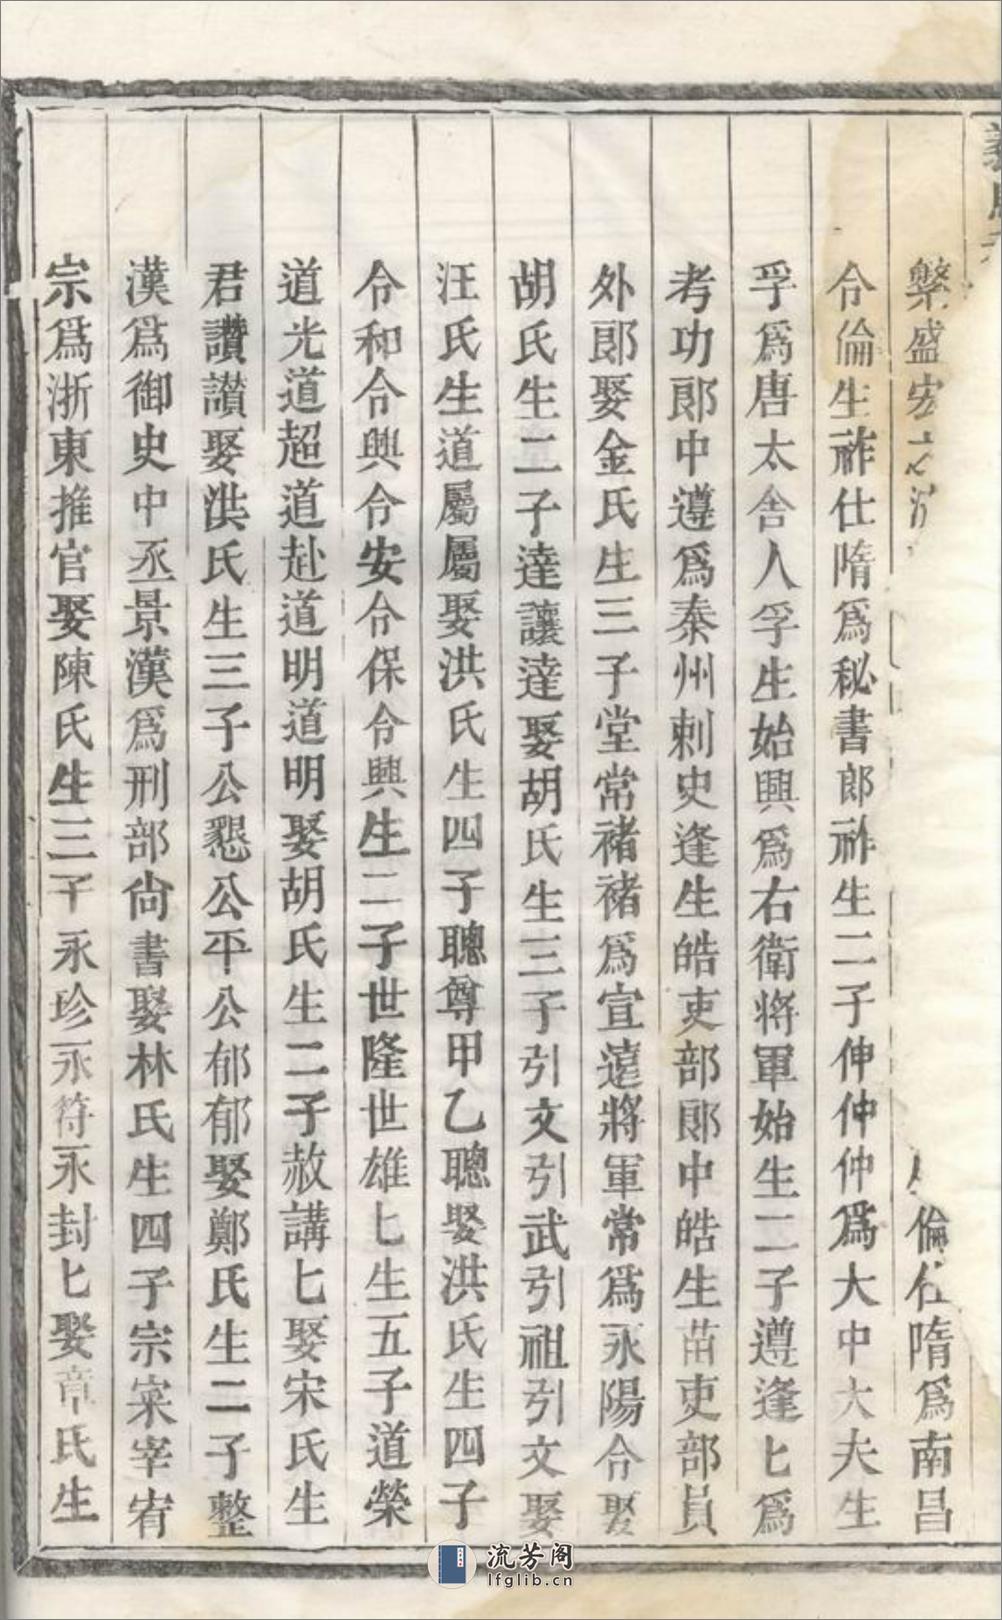 槃盛宏
倫仕隋爲南昌
令倫生祚仕隋爲秘書郎祚生二子伸仲仲爲大中大夫生
孚爲唐太舍人孚生始興爲右衛將軍始生二子遵逢匕爲
考功郎中遵爲泰州刺史逢生皓吏部郎中皓生苗吏部員
外郎娶金氏生三子堂常禇禇爲宣遠將軍常爲永陽令娶
胡氏生二子達讓達娶胡氏生三子引文引武引祖引文娶
汪氏生道屬屬娶洪氏生四子聰尊甲乙聰娶洪氏生四子
令和令興令安令保令興生二子世隆世雄匕生五子道榮
道光道超道赴道明道明娶胡氏生二子赦講匕娶宋氏生
君讚讃娶洪氏生三子公懇公平公郁郁娶鄭氏生二子整
漢爲御史中丞景漢爲刑部尙書娶林氏生四子宗寀宰宥
宗爲浙東推官娶陳氏生三子永珍永符永封匕娶章氏生
流芳阁
lfglib.cn